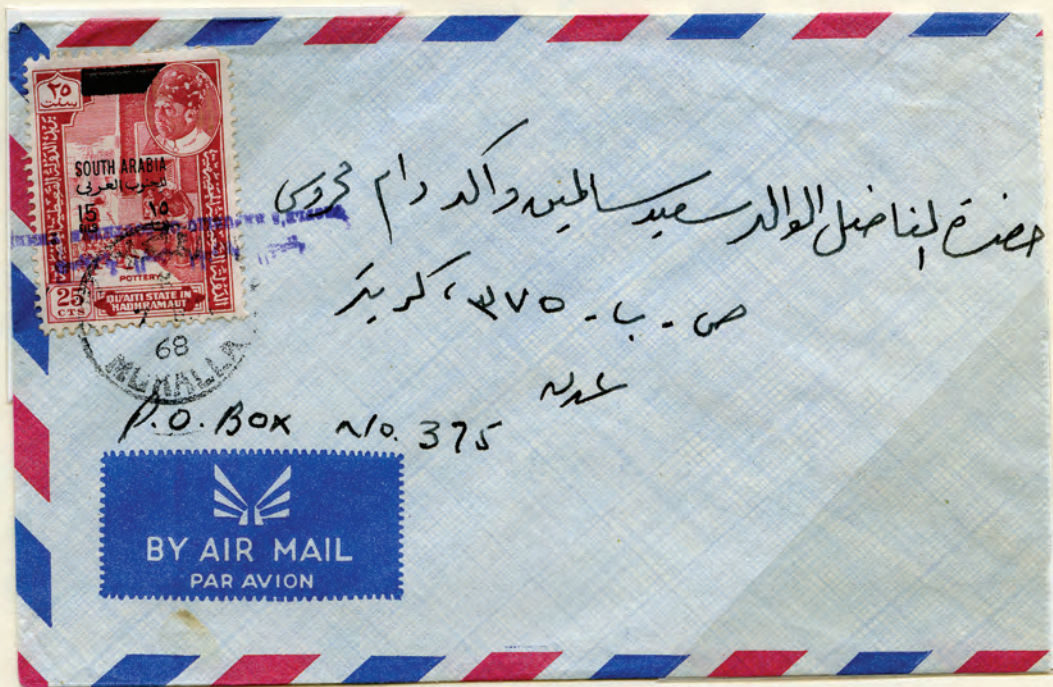 ٢٥
سنت
SOUTH ARABIA
للجنوب العربي
15 ١٥
POTTERY
25
CTS
QU'AITI STATE IN
HADHRAMAUT
68
MUKALLA
حضرة الفاضل الوالد سعيد سالمين واكد دام محروس
ص . ب . ٣٧٥ ، كريتر
عدن
P.O. BOX No. 375
BY AIR MAIL
PAR AVION